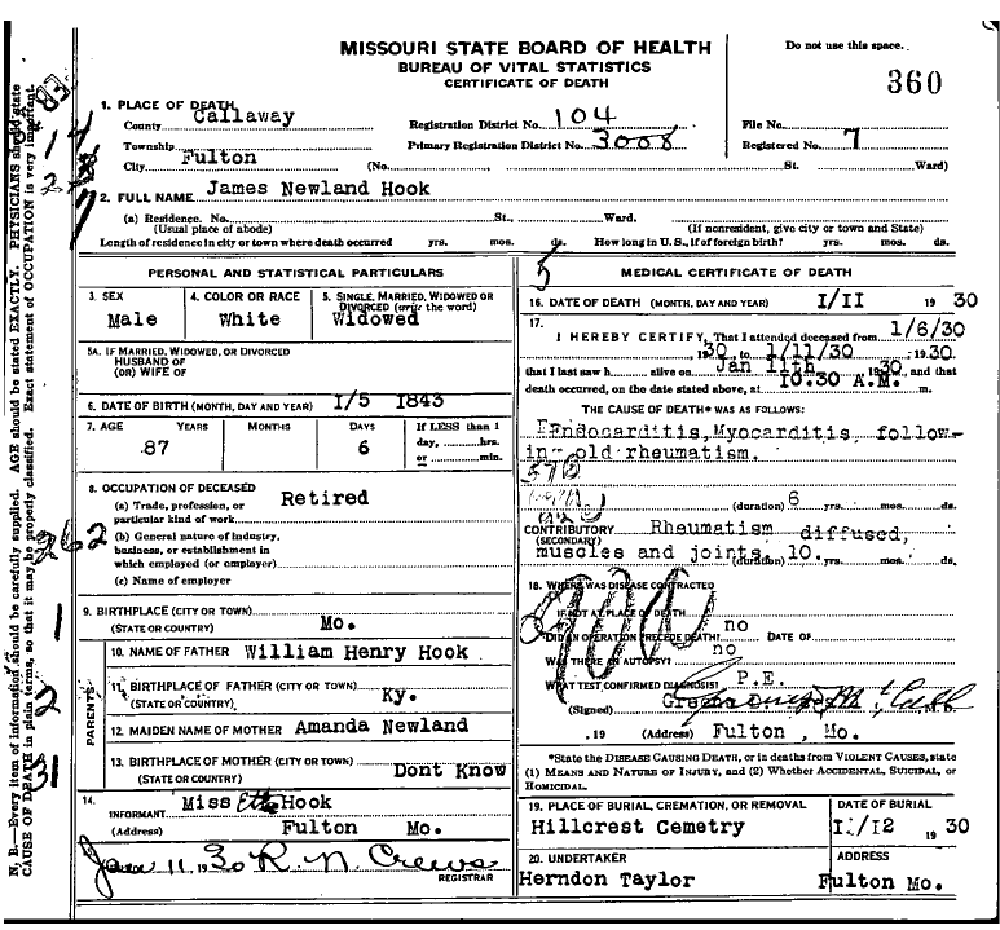 MISSOURI STATE BOARD OF HEALTH
BUREAU OF VITAL STATISTICS
CERTIFICATE OF DEATH
Do not use this space.
360
1. PLACE OF DEATH
County Callaway
Registration District No. 104
File No.
Township
Primary Registration District No. 3008
Registered No. 7
City Fulton (No. St. Ward)
2. FULL NAME James Newland Hook
(a) Residence. No. St., Ward.
(Usual place of abode) (If nonresident, give city or town and State)
Length of residence in city or town where death occurred yrs. mos. ds. How long in U. S., if of foreign birth? yrs. mos. ds.
PERSONAL AND STATISTICAL PARTICULARS
3. SEX
Male
4. COLOR OR RACE
White
5. SINGLE, MARRIED, WIDOWED OR
DIVORCED (write the word)
Widowed
5A. IF MARRIED, WIDOWED, OR DIVORCED
HUSBAND OF
(OR) WIFE OF
6. DATE OF BIRTH (MONTH, DAY AND YEAR) I/5 I843
7. AGE YEARS MONTHS DAYS If LESS than 1
day, hrs.
or min.
87 6
8. OCCUPATION OF DECEASED
(a) Trade, profession, or
particular kind of work Retired
(b) General nature of industry,
business, or establishment in
which employed (or employer)
(c) Name of employer
9. BIRTHPLACE (CITY OR TOWN)
(STATE OR COUNTRY) Mo.
PARENTS
10. NAME OF FATHER William Henry Hook
11. BIRTHPLACE OF FATHER (CITY OR TOWN)
(STATE OR COUNTRY) Ky.
12. MAIDEN NAME OF MOTHER Amanda Newland
13. BIRTHPLACE OF MOTHER (CITY OR TOWN)
(STATE OR COUNTRY) Dont Know
14.
INFORMANT Miss Etta Hook
(Address) Fulton Mo.
Jan 11, 1930 R. N. Crews
REGISTRAR
5
MEDICAL CERTIFICATE OF DEATH
16. DATE OF DEATH (MONTH, DAY AND YEAR) I/II 19 30
17.
I HEREBY CERTIFY, That I attended deceased from 1/6/30
1930, to 1/11/30, 1930
that I last saw h alive on Jan 11th 1930, and that
death occurred, on the date stated above, at 10.30 A.M. m.
THE CAUSE OF DEATH* WAS AS FOLLOWS:
Endocarditis, Myocarditis, follow-
ing old rheumatism.
(duration) 6 yrs. mos. ds.
CONTRIBUTORY Rheumatism diffused,
(SECONDARY)
muscles and joints (duration) 10. yrs. mos. ds.
18. WHERE WAS DISEASE CONTRACTED
IF NOT AT PLACE OF DEATH
DID AN OPERATION PRECEDE DEATH? no DATE OF
WAS THERE AN AUTOPSY? no
WHAT TEST CONFIRMED DIAGNOSIS? P.E.
(Signed) M. D.
, 19 (Address) Fulton, Mo.
*State the DISEASE CAUSING DEATH, or in deaths from VIOLENT CAUSES, state
(1) MEANS AND NATURE OF INJURY, and (2) Whether ACCIDENTAL, SUICIDAL, or
HOMICIDAL.
19. PLACE OF BURIAL, CREMATION, OR REMOVAL
Hillcrest Cemetry
DATE OF BURIAL
I/I2 19 30
20. UNDERTAKER
Herndon Taylor
ADDRESS
Fulton Mo.
N. B.—Every item of information should be carefully supplied. AGE should be stated EXACTLY. PHYSICIANS should state
CAUSE OF DEATH in plain terms, so that it may be properly classified. Exact statement of OCCUPATION is very important.